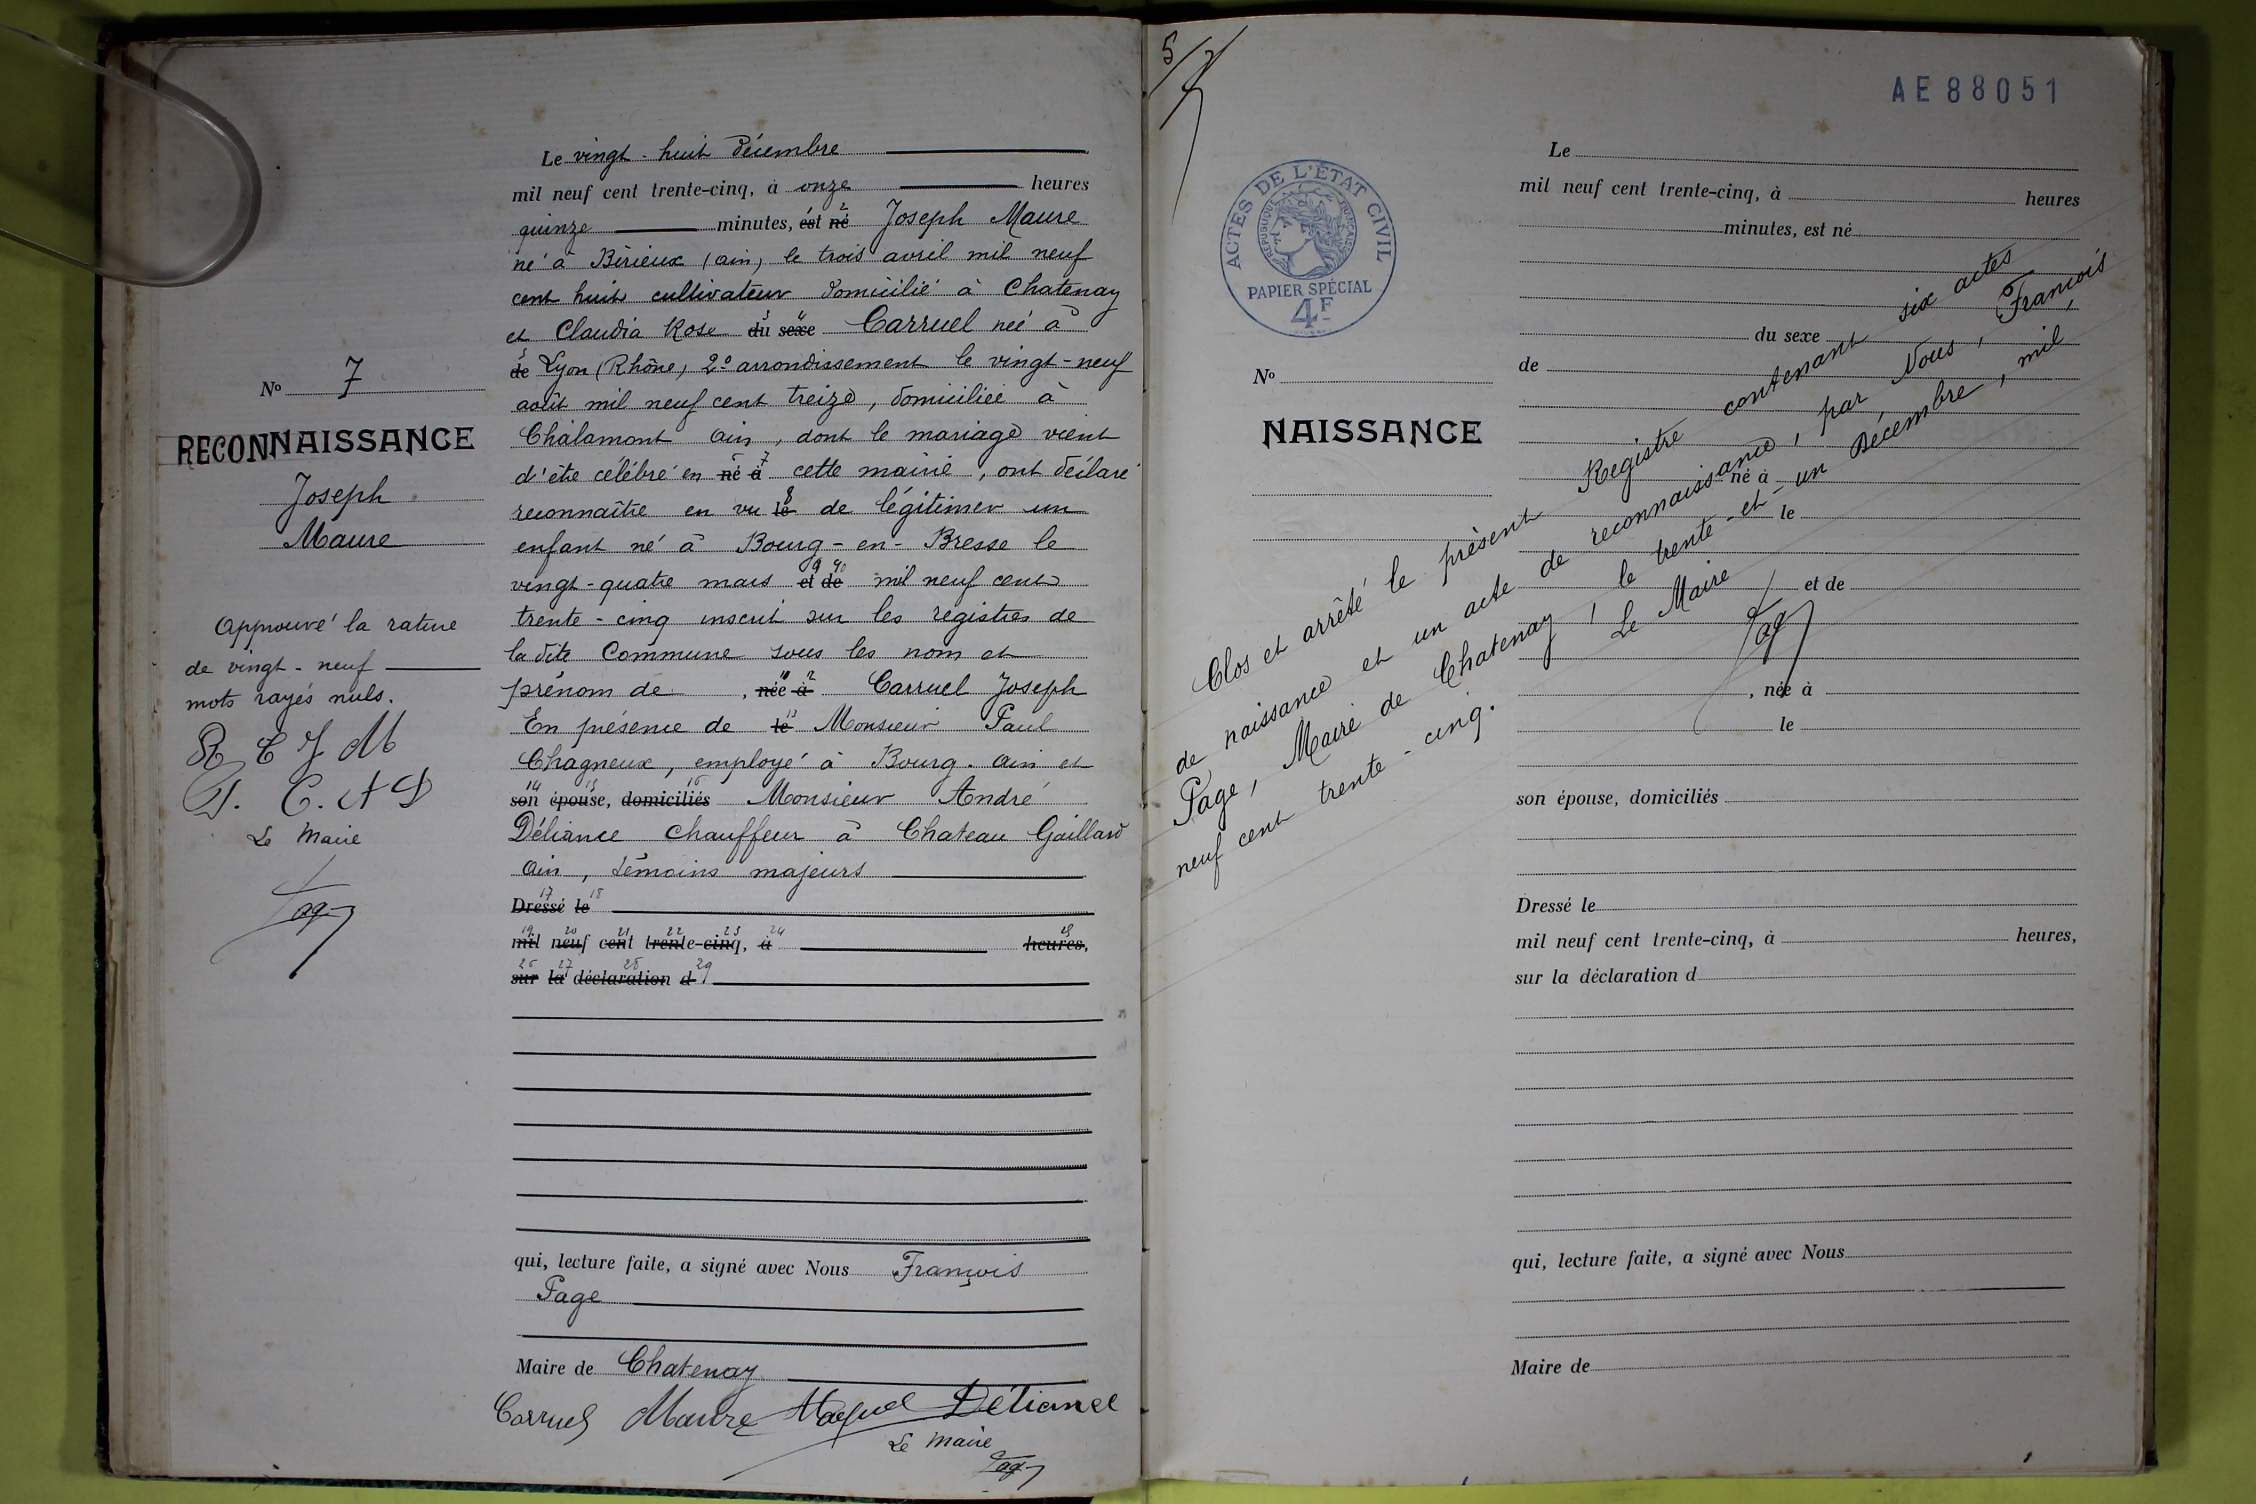 Le vingt-huit décembre
mil neuf cent trente-cinq, à onze heures
quinze minutes, est né 2 Joseph Maure
né à Birieux (ain) le trois avril mil neuf
cent huit cultivateur domicilié à Chatenay
et Claudia Rose du 3 sexe 4 Carruel neé à
de 5 Lyon (Rhône) 2e arrondissement le vingt-neuf
août mil neuf cent treize, domiciliée à
Châlamont ain, dont le mariage vient
d'être célébré en né à 7 cette mairie, ont déclaré
reconnaître en vu le 8 de légitimer un
enfant né à Bourg-en-Bresse le
vingt-quatre mars et 9 de 10 mil neuf cent
trente-cinq inscrit sur les registres de
la dite Commune sous les nom et
prénom de , née 11 à 12 Carruel Joseph
En présence de le 13 Monsieur Paul
Chagneux, employé à Bourg. ain et
14 15 16
son épouse, domiciliés Monsieur André
Déliance chauffeur à Chateau Gaillard
ain, témoins majeurs
17 18
Dressé le
19 20 21 22 23 24 25
mil neuf cent trente-cinq, à heures,
26 27 28 29
sur la déclaration d
qui, lecture faite, a signé avec Nous François
Page
Maire de Chatenay
Carruel Maure Déliance
Le Maire
Page
No 7
RECONNAISSANCE
Joseph
Maure
Approuvé la rature
de vingt-neuf
mots rayés nuls.
R C J M
P. C. A D
Le Maire
Page
5/7
AE 88051
ACTES DE L'ÉTAT CIVIL
RÉPUBLIQUE FRANÇAISE
PAPIER SPÉCIAL
4F
No
NAISSANCE
Le
mil neuf cent trente-cinq, à heures
minutes, est né
du sexe
de
né à
le
et de
, née à
le
son épouse, domiciliés
Dressé le
mil neuf cent trente-cinq, à heures,
sur la déclaration d
qui, lecture faite, a signé avec Nous
Maire de
Clos et arrêté le présent Registre contenant six actes
de naissance et un acte de reconnaissance, par Nous, François
Page, Maire de Chatenay, le trente-et-un Décembre, mil
neuf cent trente-cinq.
Le Maire
Page